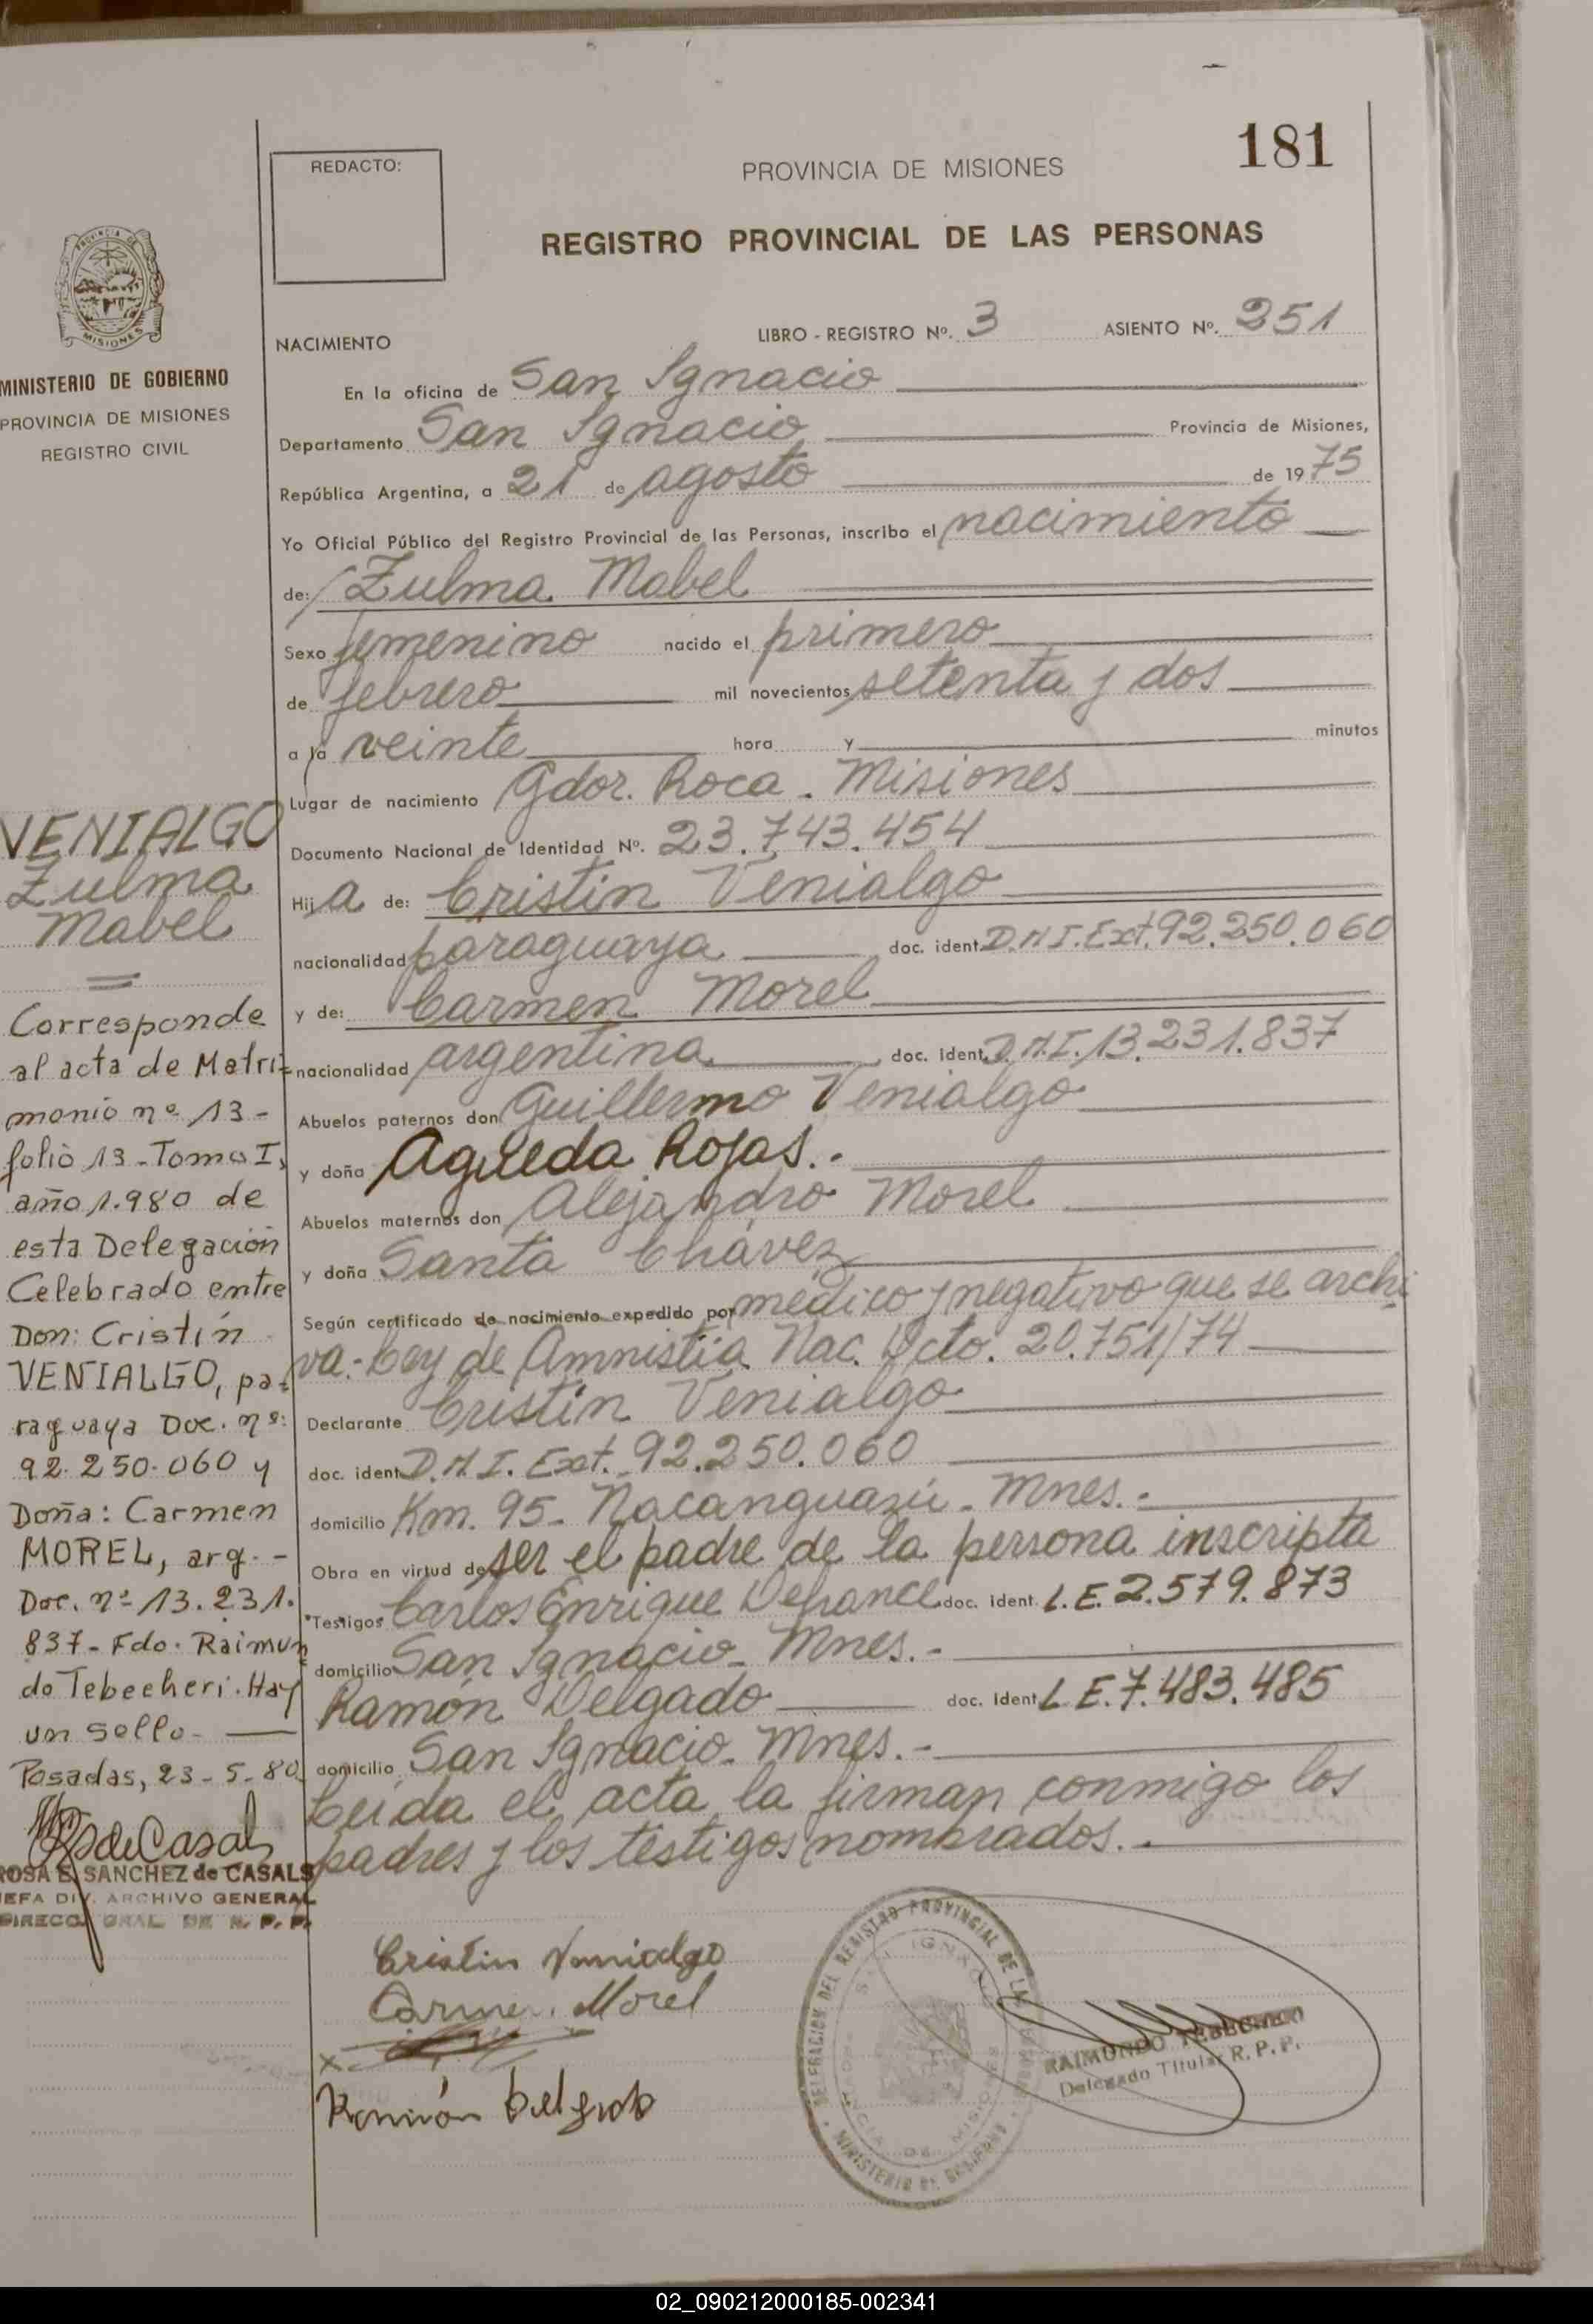 181
REDACTO:
PROVINCIA DE MISIONES
REGISTRO PROVINCIAL DE LAS PERSONAS
PROVINCIA DE
MISIONES
MINISTERIO DE GOBIERNO
PROVINCIA DE MISIONES
REGISTRO CIVIL
NACIMIENTO LIBRO - REGISTRO Nº. 3 ASIENTO Nº. 251
En la oficina de San Ignacio
Departamento San Ignacio Provincia de Misiones,
República Argentina, a 21 de agosto de 1975
Yo Oficial Público del Registro Provincial de las Personas, inscribo el nacimiento
de: Zulma Mabel
Sexo femenino nacido el primero
de febrero mil novecientos setenta y dos
a la veinte hora y minutos
Lugar de nacimiento Gdor. Roca - Misiones
Documento Nacional de Identidad Nº. 23.743.454
Hija de: Cristin Venialgo
nacionalidad paraguaya doc. ident. D.N.I. Ext. 92.250.060
y de: Carmen Morel
nacionalidad argentina doc. ident. D.N.I. 13.231.837
Abuelos paternos don Guillermo Venialgo
y doña Agueda Rojas.-
Abuelos maternos don Alejandro Morel
y doña Santa Chávez
Según certificado de nacimiento expedido por médico y negativo que se archi
va.- Ley de Amnistía Nac. Dcto. 20.751/74
Declarante Cristin Venialgo
doc. ident. D.N.I. Ext. 92.250.060
domicilio Km. 95 - Ñacanguazú - Mnes.-
Obra en virtud de ser el padre de la persona inscripta
Testigos Carlos Enrique Defrance doc. ident. L.E. 2.579.873
domicilio San Ignacio - Mnes.-
Ramón Delgado doc. ident. L.E. 7.483.485
domicilio San Ignacio - Mnes.-
Leida el acta la firman conmigo los
padres y los testigos nombrados.-
VENIALGO
Zulma
Mabel
Corresponde
al acta de Matri-
monio nº 13-
folio 13 - Tomo I,
año 1.980 de
esta Delegación
Celebrado entre
Don: Cristín
VENIALGO, pa-
raguaya Doc. nº:
92.250.060 y
Doña: Carmen
MOREL, arg.-
Doc. nº 13.231.
837 - Fdo. Raimun
do Tebecheri. Hay
un sello-
Posadas, 23-5-80
R S de Casals
ROSA E. SANCHEZ de CASALS
JEFA DIV. ARCHIVO GENERAL
DIRECC. GRAL. DE R. P. P.
Cristin Venialgo
Carmen Morel
x
Ramón Delgado
DELEGACION DEL REGISTRO PROVINCIAL DE LAS
SAN IGNACIO
MISIONES
MINISTERIO DE GOBIERNO
RAIMUNDO TEBECHERI
Delegado Titular R. P. P.
02_090212000185-002341